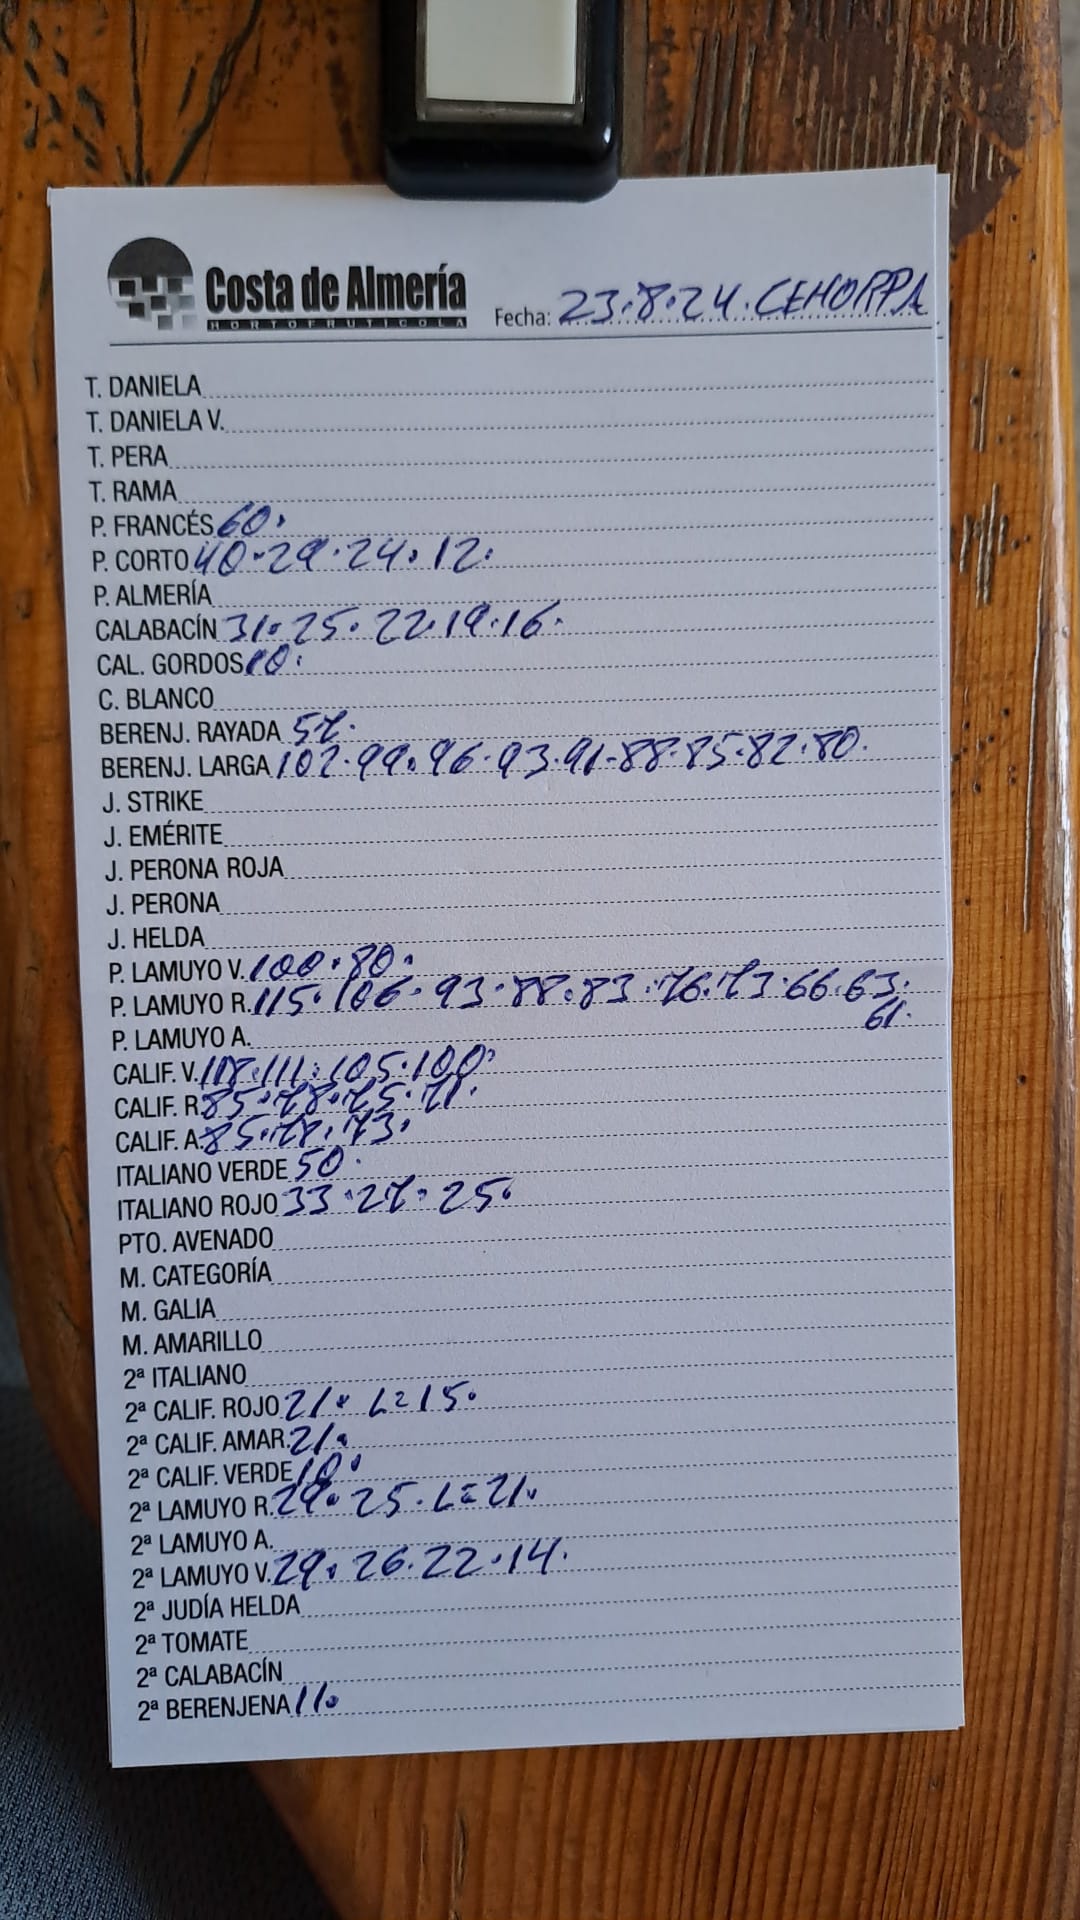 Costa de Almería
HORTOFRUTICOLA
Fecha: 23.8.24. CEHORPA
T. DANIELA
T. DANIELA V.
T. PERA
T. RAMA
P. FRANCÉS 60.
P. CORTO 40.29.24.12.
P. ALMERÍA
CALABACÍN 31.25.22.19.16.
CAL. GORDOS 10.
C. BLANCO
BERENJ. RAYADA 57.
BERENJ. LARGA 102.99.96.93.91-88.85.82.80.
J. STRIKE
J. EMÉRITE
J. PERONA ROJA
J. PERONA
J. HELDA
P. LAMUYO V. 100.80.
P. LAMUYO R. 115.106.93.88.83.76.73.66.63.
61.
P. LAMUYO A.
CALIF. V. 111.105.100.
CALIF. R 85.78.75.71.
CALIF. A. 85.78.73.
ITALIANO VERDE 50.
ITALIANO ROJO 33.27.25.
PTO. AVENADO
M. CATEGORÍA
M. GALIA
M. AMARILLO
2ª ITALIANO
2ª CALIF. ROJO 21. L=15.
2ª CALIF. AMAR. 21.
2ª CALIF. VERDE 10.
2ª LAMUYO R. 29.25.L=21.
2ª LAMUYO A.
2ª LAMUYO V. 29.26.22.14.
2ª JUDÍA HELDA
2ª TOMATE
2ª CALABACÍN
2ª BERENJENA 11.